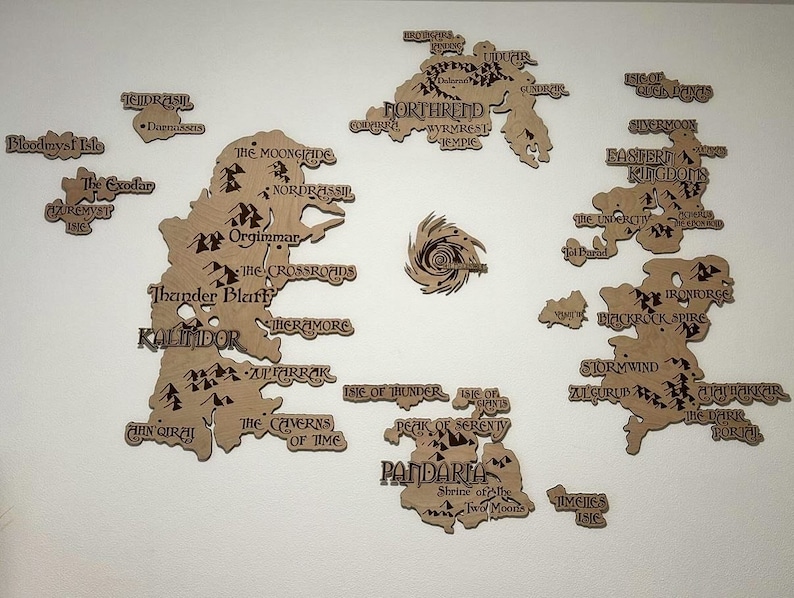 HROTHGARS
LANDING
ULDUAR
Dalaran
GUNDRAK
NORTHREND
COLDARRA
WYRMREST
TEMPLE
ISLE OF
QUEL DANAS
TELDRASSIL
Darnassus
Bloodmyst Isle
The Exodar
AZUREMYST
ISLE
THE MOONGLADE
NORDRASSIL
Orgimmar
THE CROSSROADS
Thunder Bluff
THERAMORE
KALIMDOR
ZUL'FARRAK
AHN'QIRAJ
THE CAVERNS
OF TIME
SILVERMOON
EASTERN
KINGDOMS
THE UNDERCITY
ACHERUS
THE EBON HOLD
Tol Barad
IRONFORGE
BLACKROCK SPIRE
STORMWIND
ZUL'GURUB
ATAL'HAKKAR
THE DARK
PORTAL
ISLE OF THUNDER
ISLE OF
GIANTS
PEAK OF SERENITY
PANDARIA
Shrine of the
Two Moons
TIMELLES
ISLE